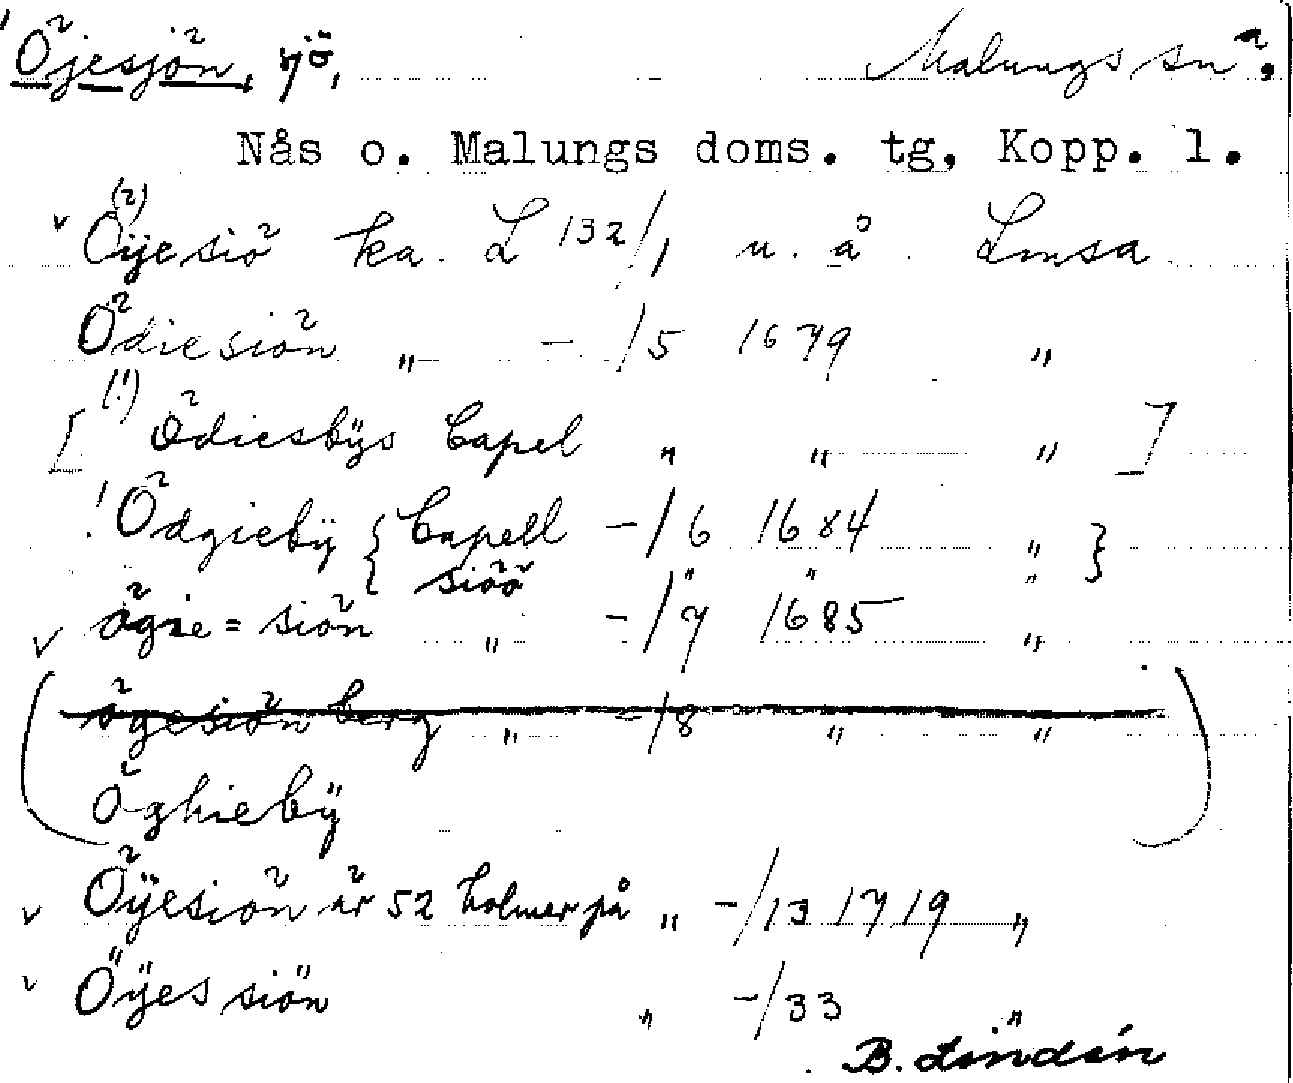 Öjesjön, sjö, Malungs sn.
Nås o. Malungs doms. tg, Kopp. l.
v Öÿesiö ka. L 132/1 u. å. Lmsa
Ödiesiön " - /5 1679 "
[(!) Ödiesbÿs Capel " " " ]
! Ödgiebÿ { Capell -/6 1684 " }
siöö " " "
v ögie=siön " -/7 1685 "
( ögesiön berg " -/8 " "
Öghiebÿ )
v Öÿesiön är 52 holmer på " -/13 1719 "
v Öÿessiön " -/33 "
B. Lindén